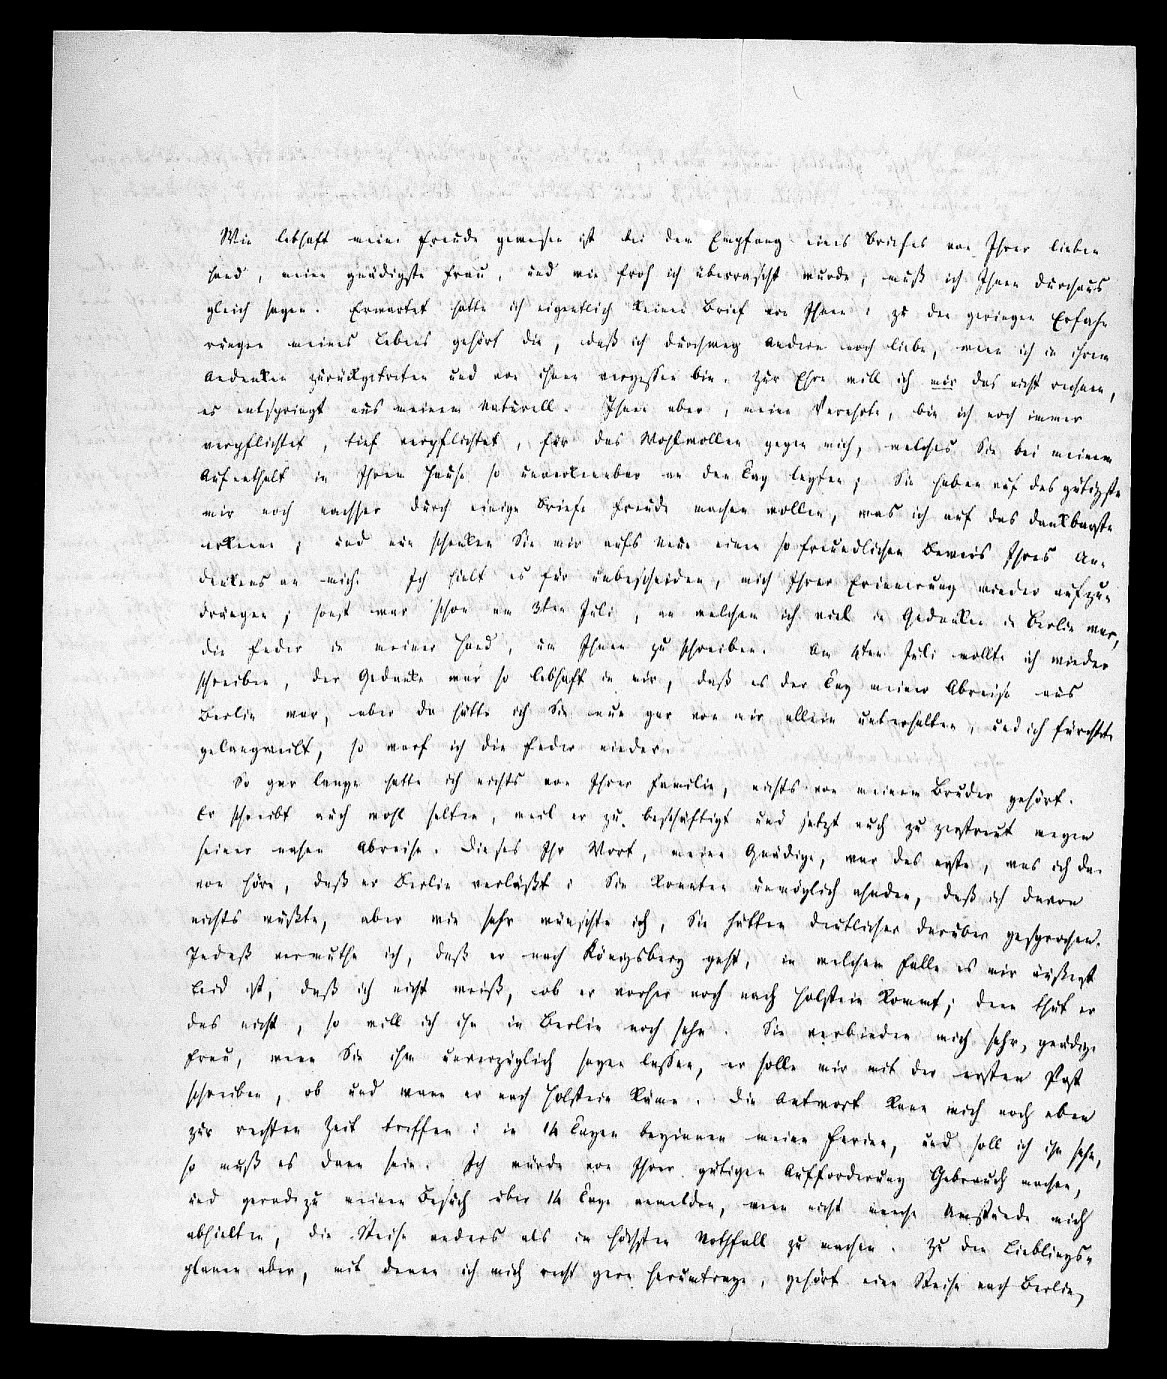 Wie lebhaft meine Freude gewesen ist bei dem Empfang eines Briefes von Ihrer lieben
Hand, meine gnädigste Frau, und wie froh ich überrascht wurde, muß ich Ihnen durchaus
gleich sagen. Erwartet hatte ich eigentlich keinen Brief von Ihnen: zu den geringen Erfah
rungen meines Lebens gehört die, daß ich durchweg andere noch liebe, wenn ich in ihrem
Andenken zurückgetreten und von ihnen vergessen bin. Zur Ehre will ich mir das nicht rechnen,
es entspringt aus meinem Naturell. Ihnen aber, meine Verehrte, bin ich noch immer
verpflichtet, tief verpflichtet, für das Wohlwollen gegen mich, welches Sie bei meinem
Aufenthalt in Ihrem Hause so unverkennbar an den Tag legten; Sie haben auf das gütigste
mir noch nachher durch einige Briefe Freude machen wollen, was ich auf das dankbarste
erkenne; und nun schenken Sie mir aufs neue einen so freundlichen Beweis Ihres An-
denkens an mich. Ich hielt es für unbescheiden, mich Ihrer Erinnerung wieder aufzu-
drängen; sonst war schon am 3ten Juli, an welchem ich viel in Gedanken in Berlin war,
die Feder in meiner Hand, um Ihnen zu schreiben. Am 4ten Juli wollte ich wieder
schreiben, der Gedanke war so lebhaft in mir, daß es der Tag meiner Abreise aus
Berlin war, aber da hätte ich Sie nun gar von mir allein unterhalten, und ich fürchtete
gelangweilt, so warf ich die Feder nieder.
So gar lange hatte ich nichts von Ihrer Familie, nichts von meinem Bruder gehört.
Er schreibt auch wohl selten, weil er zu beschäftigt und jetzt auch zu zerstreut wegen
seiner nahen Abreise. Dieses Ihr Wort, meine Gnädige, war das erste, was ich da-
von höre, daß er Berlin verläßt: Sie konnten unmöglich ahnden, daß ich davon
nichts wußte, aber wie sehr wünschte ich, Sie hätten deutlicher darüber gesprochen.
Indeß vermuthe ich, daß er nach Königsberg geht, in welchem Falle es mir äußerst
Leid ist, daß ich nicht weiß, ob er vorher noch nach Holstein kommt; denn thut er
das nicht, so will ich ihn in Berlin noch sehn. Sie verbinden mich sehr, gnädige
Frau, wenn Sie ihm unverzüglich sagen lassen, er solle mir mit der ersten Post
schreiben, ob und wann er nach Holstein käme. Die Antwort kann mich noch eben
zur rechten Zeit treffen: in 14 Tagen beginnen meine Ferien, und soll ich ihn sehn,
so muß es dann sein. Ich würde von Ihrer gütigen Aufforderung Gebrauch machen,
und geradezu meinen Besuch über 14 Tage anmelden, wenn nicht manche Umstände mich
abhielten, die Reise anders als im höchsten Nothfall zu machen. Zu den Lieblings-
planen aber, mit denen ich mich recht gern herumtrage, gehört eine Reise nach Berlin,